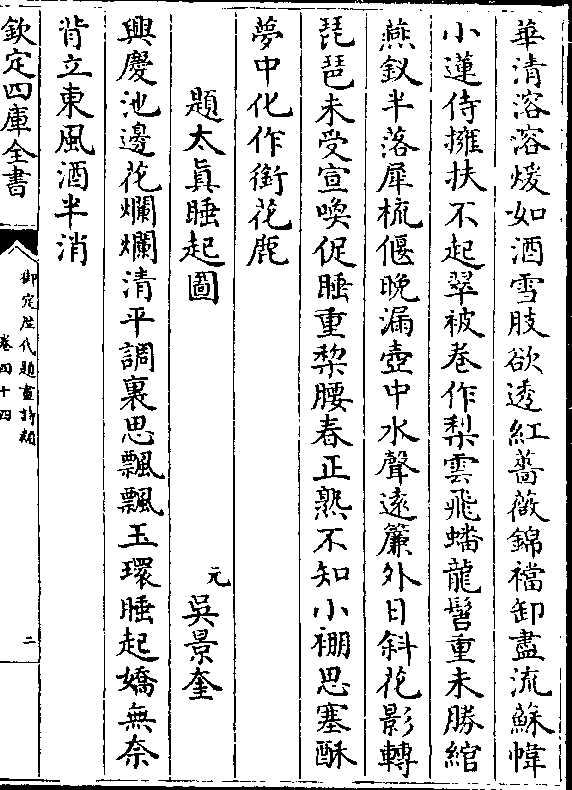 華清溶溶煖如酒雪肢欲透紅薔薇錦襠卸盡流蘇幃
小蓮侍擁扶不起翠被卷作梨雲飛蟠龍髻重未勝綰
燕釵半落犀梳偃晚漏壺中水聲遠簾外日斜花影轉
琵琶未受宣喚促睡重棃腰春正熟不知小棚思塞酥
夢中化作銜花鹿
題太眞睡起圖
元 吳景奎
興慶池邊花爛爛清平調裏思飄飄玉環睡起嬌無奈
背立東風酒半消
欽定四庫全書
御定歷代題畫詩類
卷四十四
二